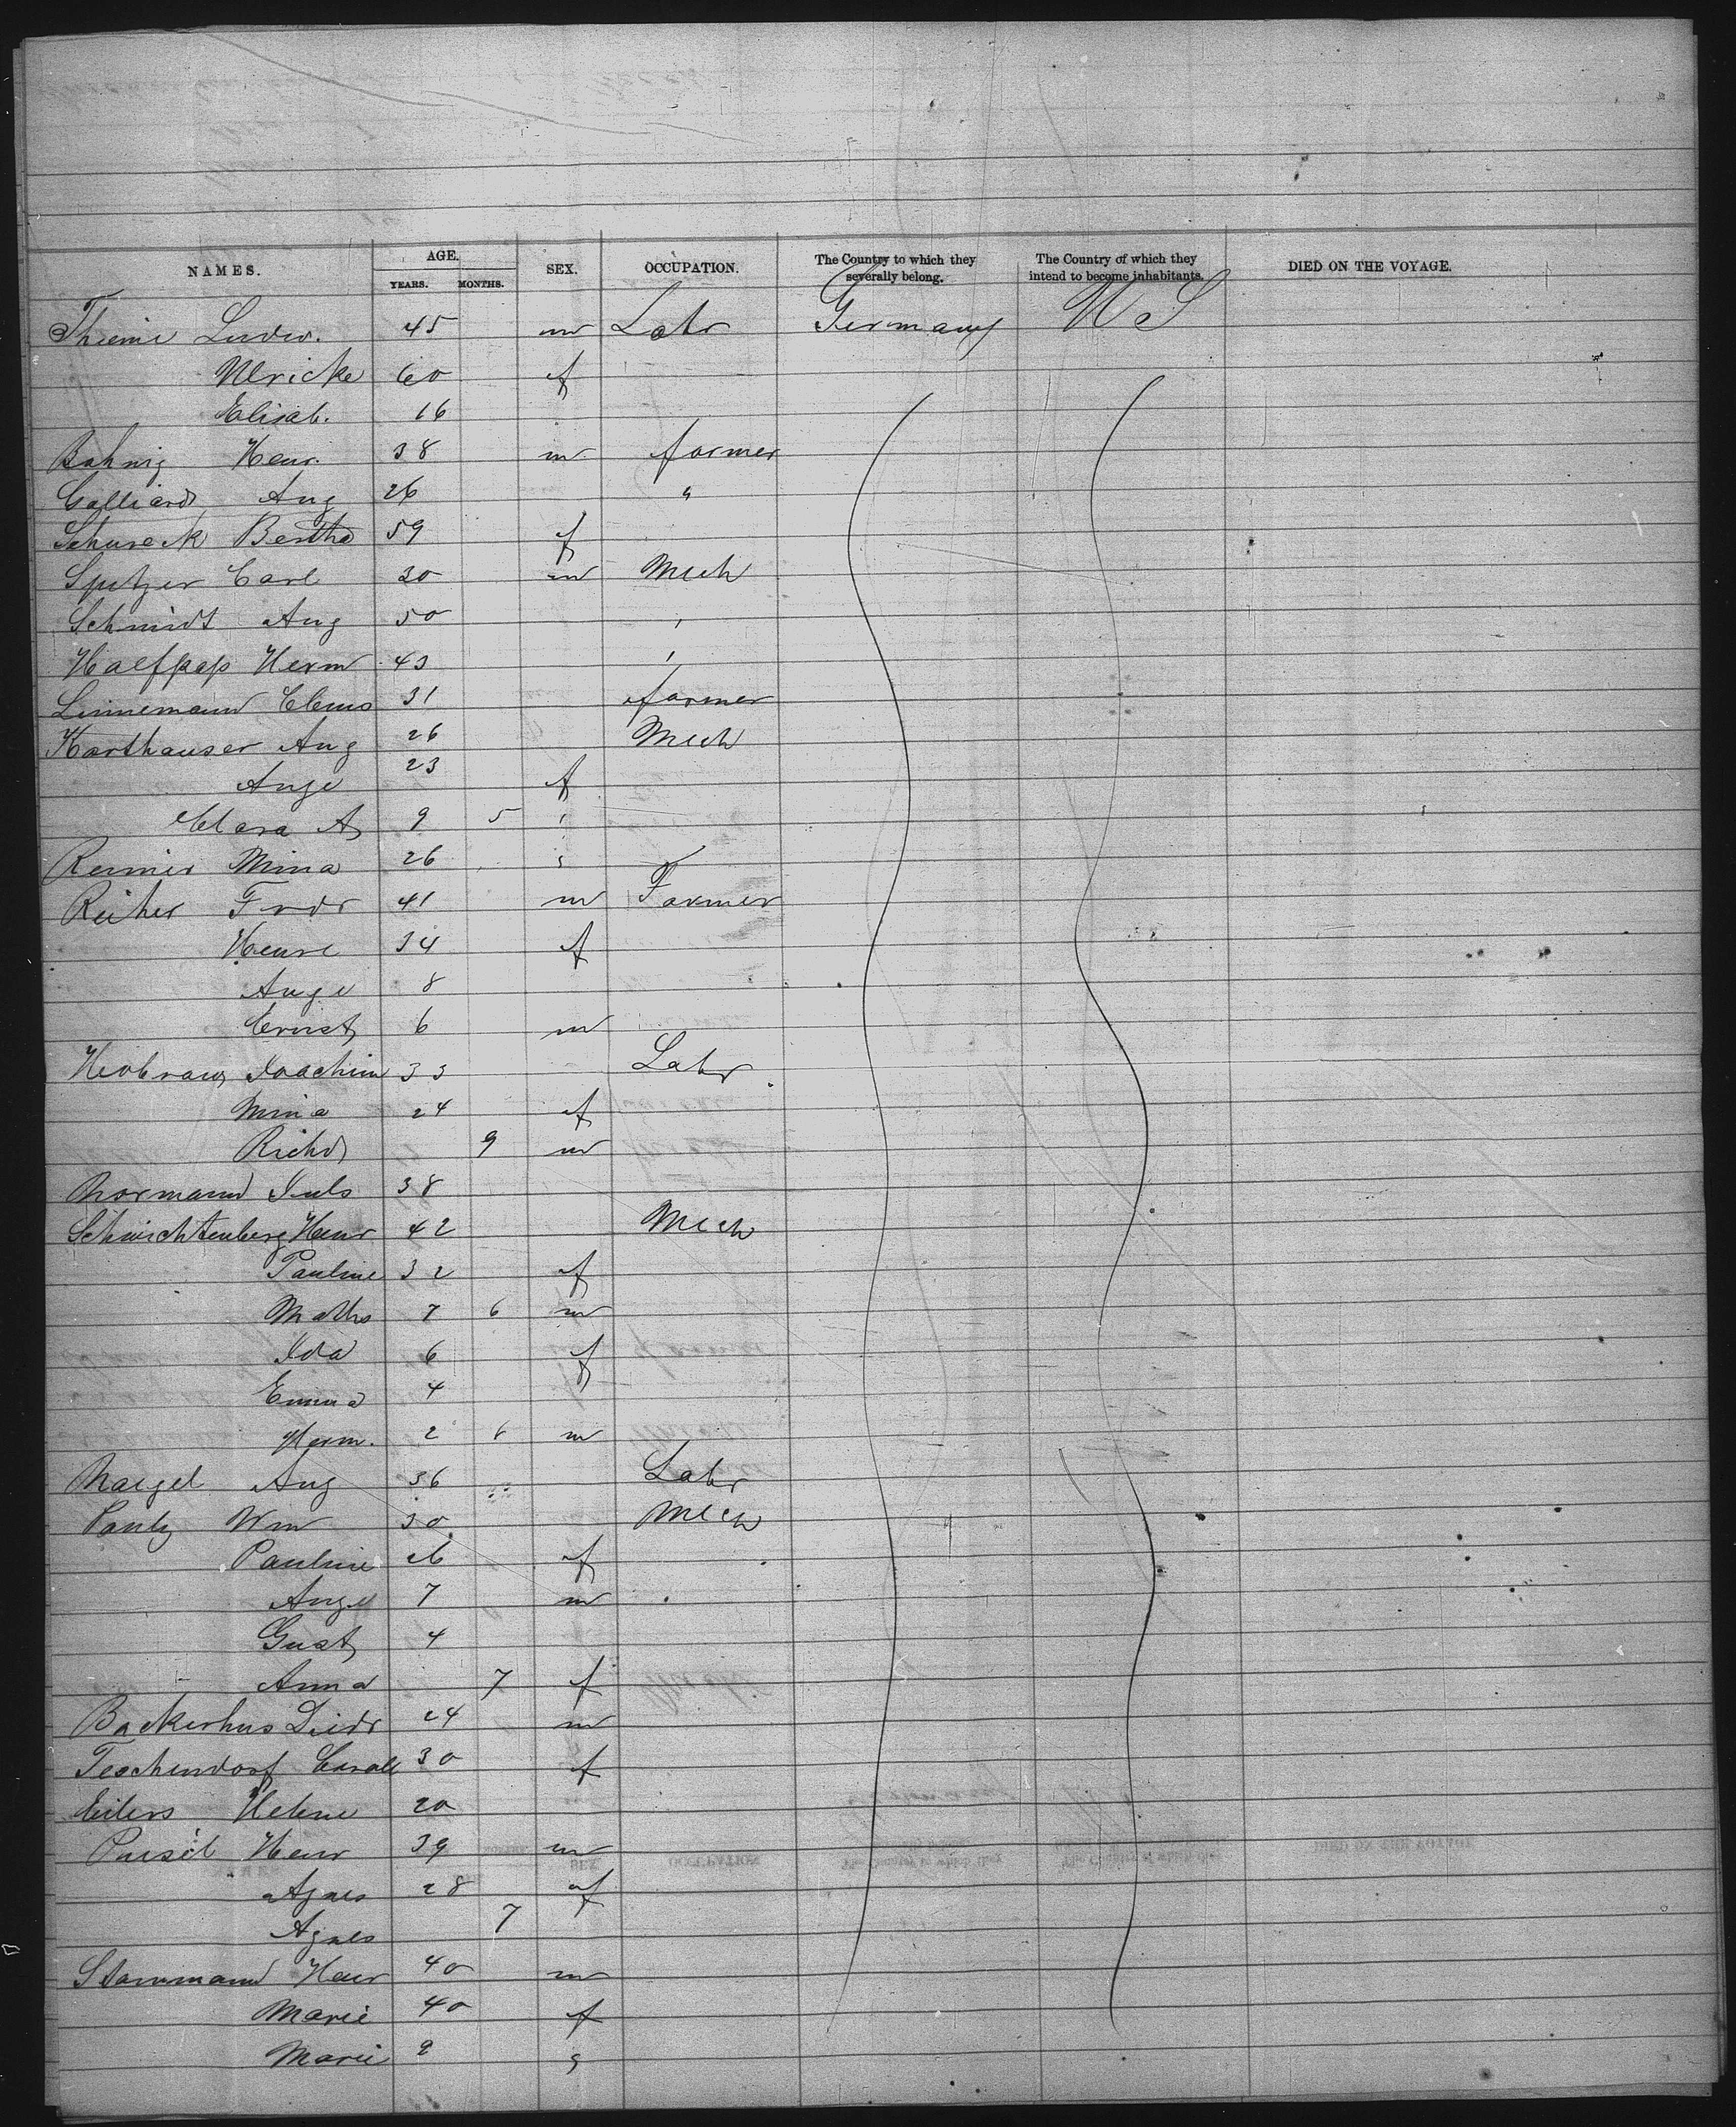 NAMES. AGE. YEARS. MONTHS. SEX. OCCUPATION. The Country to which they severally belong. The Country of which they intend to become inhabitants. DIED ON THE VOYAGE.
Thieme Ludw. 45 m Labr Germany U S
Ulricke 60 f
Elisab. 16
Bahnig Heinr. 38 m farmer
Galliard Aug 26 "
Schureck Bertha 59 f
Spitzer Carl 30 m Mech
Schmidt Aug 50 '
Halfpap Herm 43 '
Linnemann Clems 31 farmer
Karthauser Aug 26 Mech
Auge 23 f
Clara A 9 5 '
Reimer Mina 26 "
Reiher Fredr 41 m Farmer
Henre 34 f
Auge 8
Ernst 6 m
Joachim 33 Labr
Mina 24 f
Richd 9 m
Normann Juls 38
Schwichtenberg Heinr 42 Mech
Pauline 32 f
Maths 7 6 m
Ida 6 f
Emma 4
Herm. 2 6 m
Naegel Aug 36 Labr
Pautz Wm 30 Mech
Pauline 26 f
Auge 7 m
Gust 4
Anna 7 f
Backerhus Diedr 24 m
Teschendorf Carol 30 f
Eilers Helene 20
Heinr 39 m
Agnes 28 f
Agnes 7
Stammann Heinr 40 m
Marie 40 f
Marie 9 "